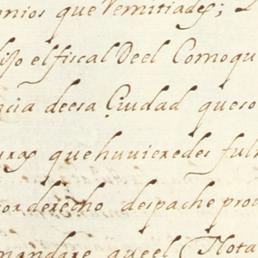 nios que Remitiades;
hiso el fiscal De el Como que
ncia de esa Ciudad que so
uras que huvieredes ful
por derecho despache pro
mandare que el Nota